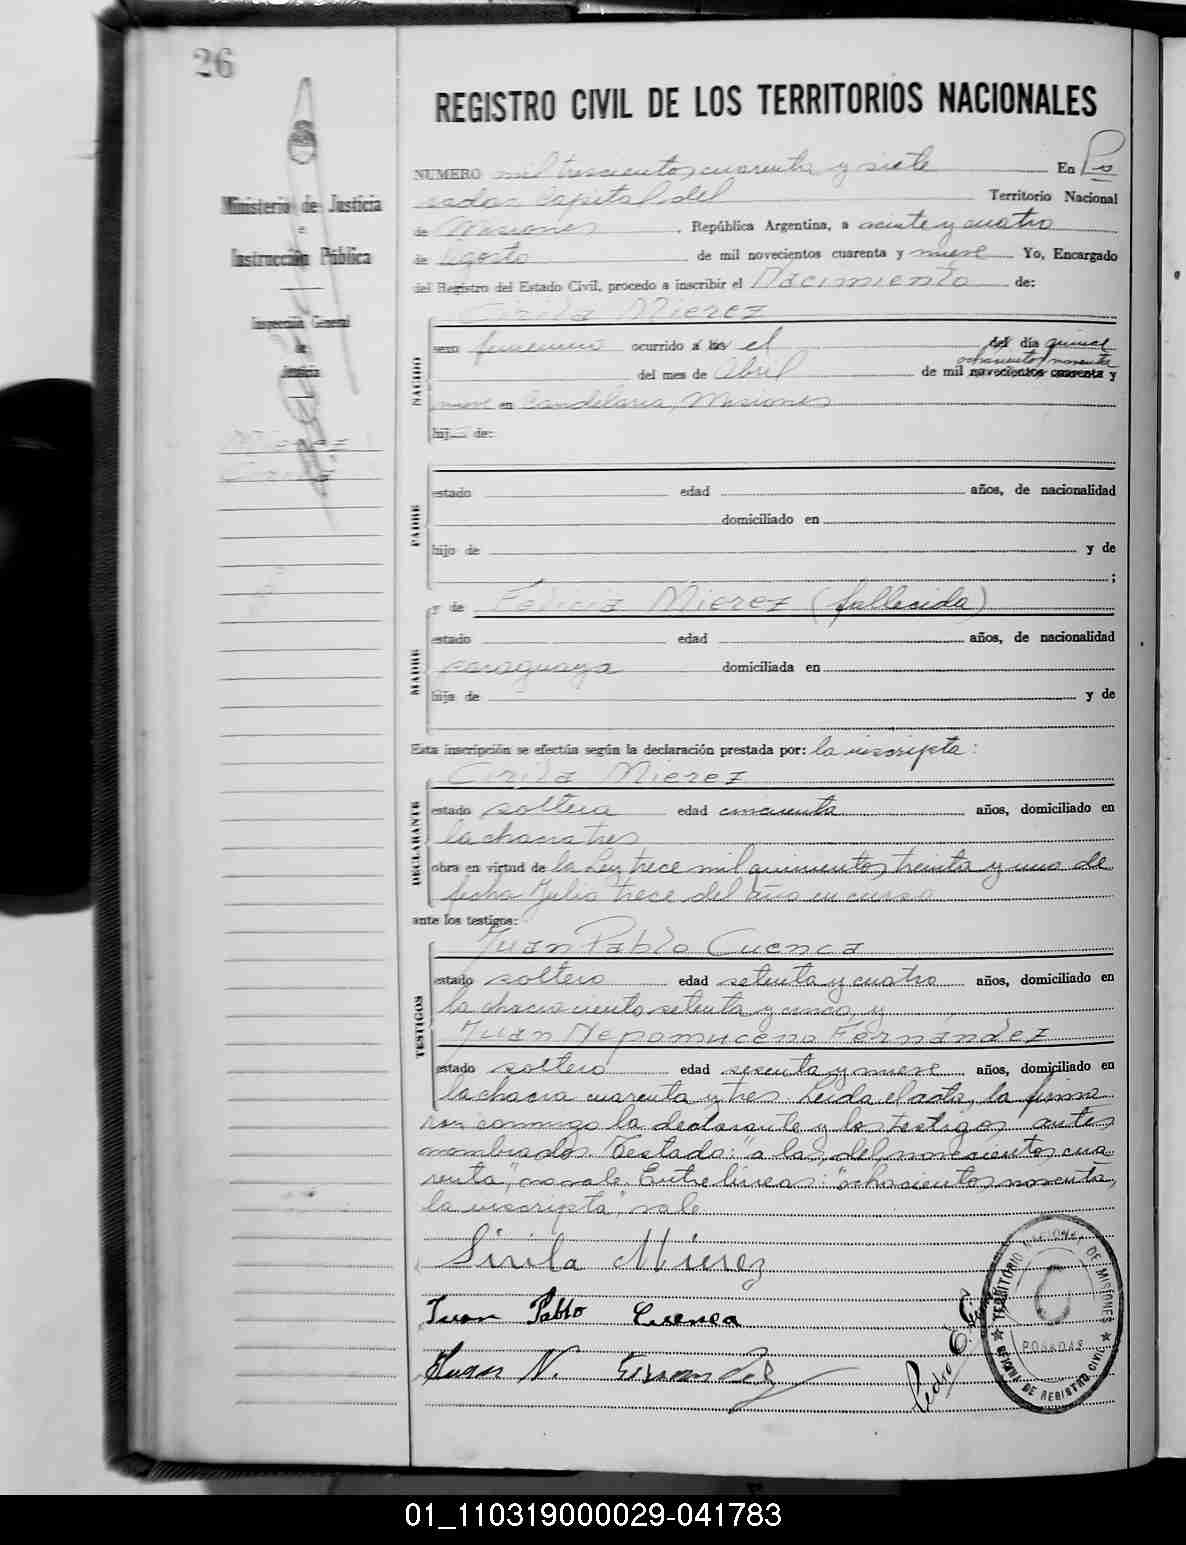 26
REGISTRO CIVIL DE LOS TERRITORIOS NACIONALES
Ministerio de Justicia
e
Instrucción Pública
Inspección General
de
Justicia
Mierez
NUMERO mil trescientos cuarenta y siete En Po
sadas Capital del Territorio Nacional
de Misiones, República Argentina, a veinte y cuatro
de Agosto de mil novecientos cuarenta y nueve Yo, Encargado
del Registro del Estado Civil, procedo a inscribir el Nacimiento de:
Cirila Mierez
NACIDO
sexo femenino ocurrido a las el del día quince
ochocientos noventa
del mes de Abril de mil novecientos cuarenta y
nueve en Candelaria, Misiones
hij de:
PADRE
estado edad años, de nacionalidad
domiciliado en
hijo de y de
;
y de Felicia Mierez (fallecida)
MADRE
estado edad años, de nacionalidad
paraguaya domiciliada en
hija de y de
Esta inscripción se efectúa según la declaración prestada por: la inscripta:
Cirila Mierez
DECLARANTE
estado soltera edad cincuenta años, domiciliado en
la chacra tres
obra en virtud de la Ley trece mil quinientos treinta y uno de
fecha Julio trece del año en curso
ante los testigos:
Juan Pablo Cuenca
TESTIGOS
estado soltero edad setenta y cuatro años, domiciliado en
la chacra ciento setenta y cinco, y
Juan Nepomuceno Fernández
estado soltero edad sesenta y nueve años, domiciliado en
la chacra cuarenta y tres Leída el acta, la firma
ron conmigo la declarante y los testigos antes
nombrados. Testado: "a las, del, novecientos cua
renta", no vale. Entre líneas: "ochocientos noventa,
la inscripta", vale
Sirila Mierez
Juan Pablo Cuenca
Juan N. Fernandez
Pedro E.
TERRITORIO NACIONAL DE MISIONES
POSADAS
OFICINA DE REGISTRO CIVIL
01_110319000029-041783